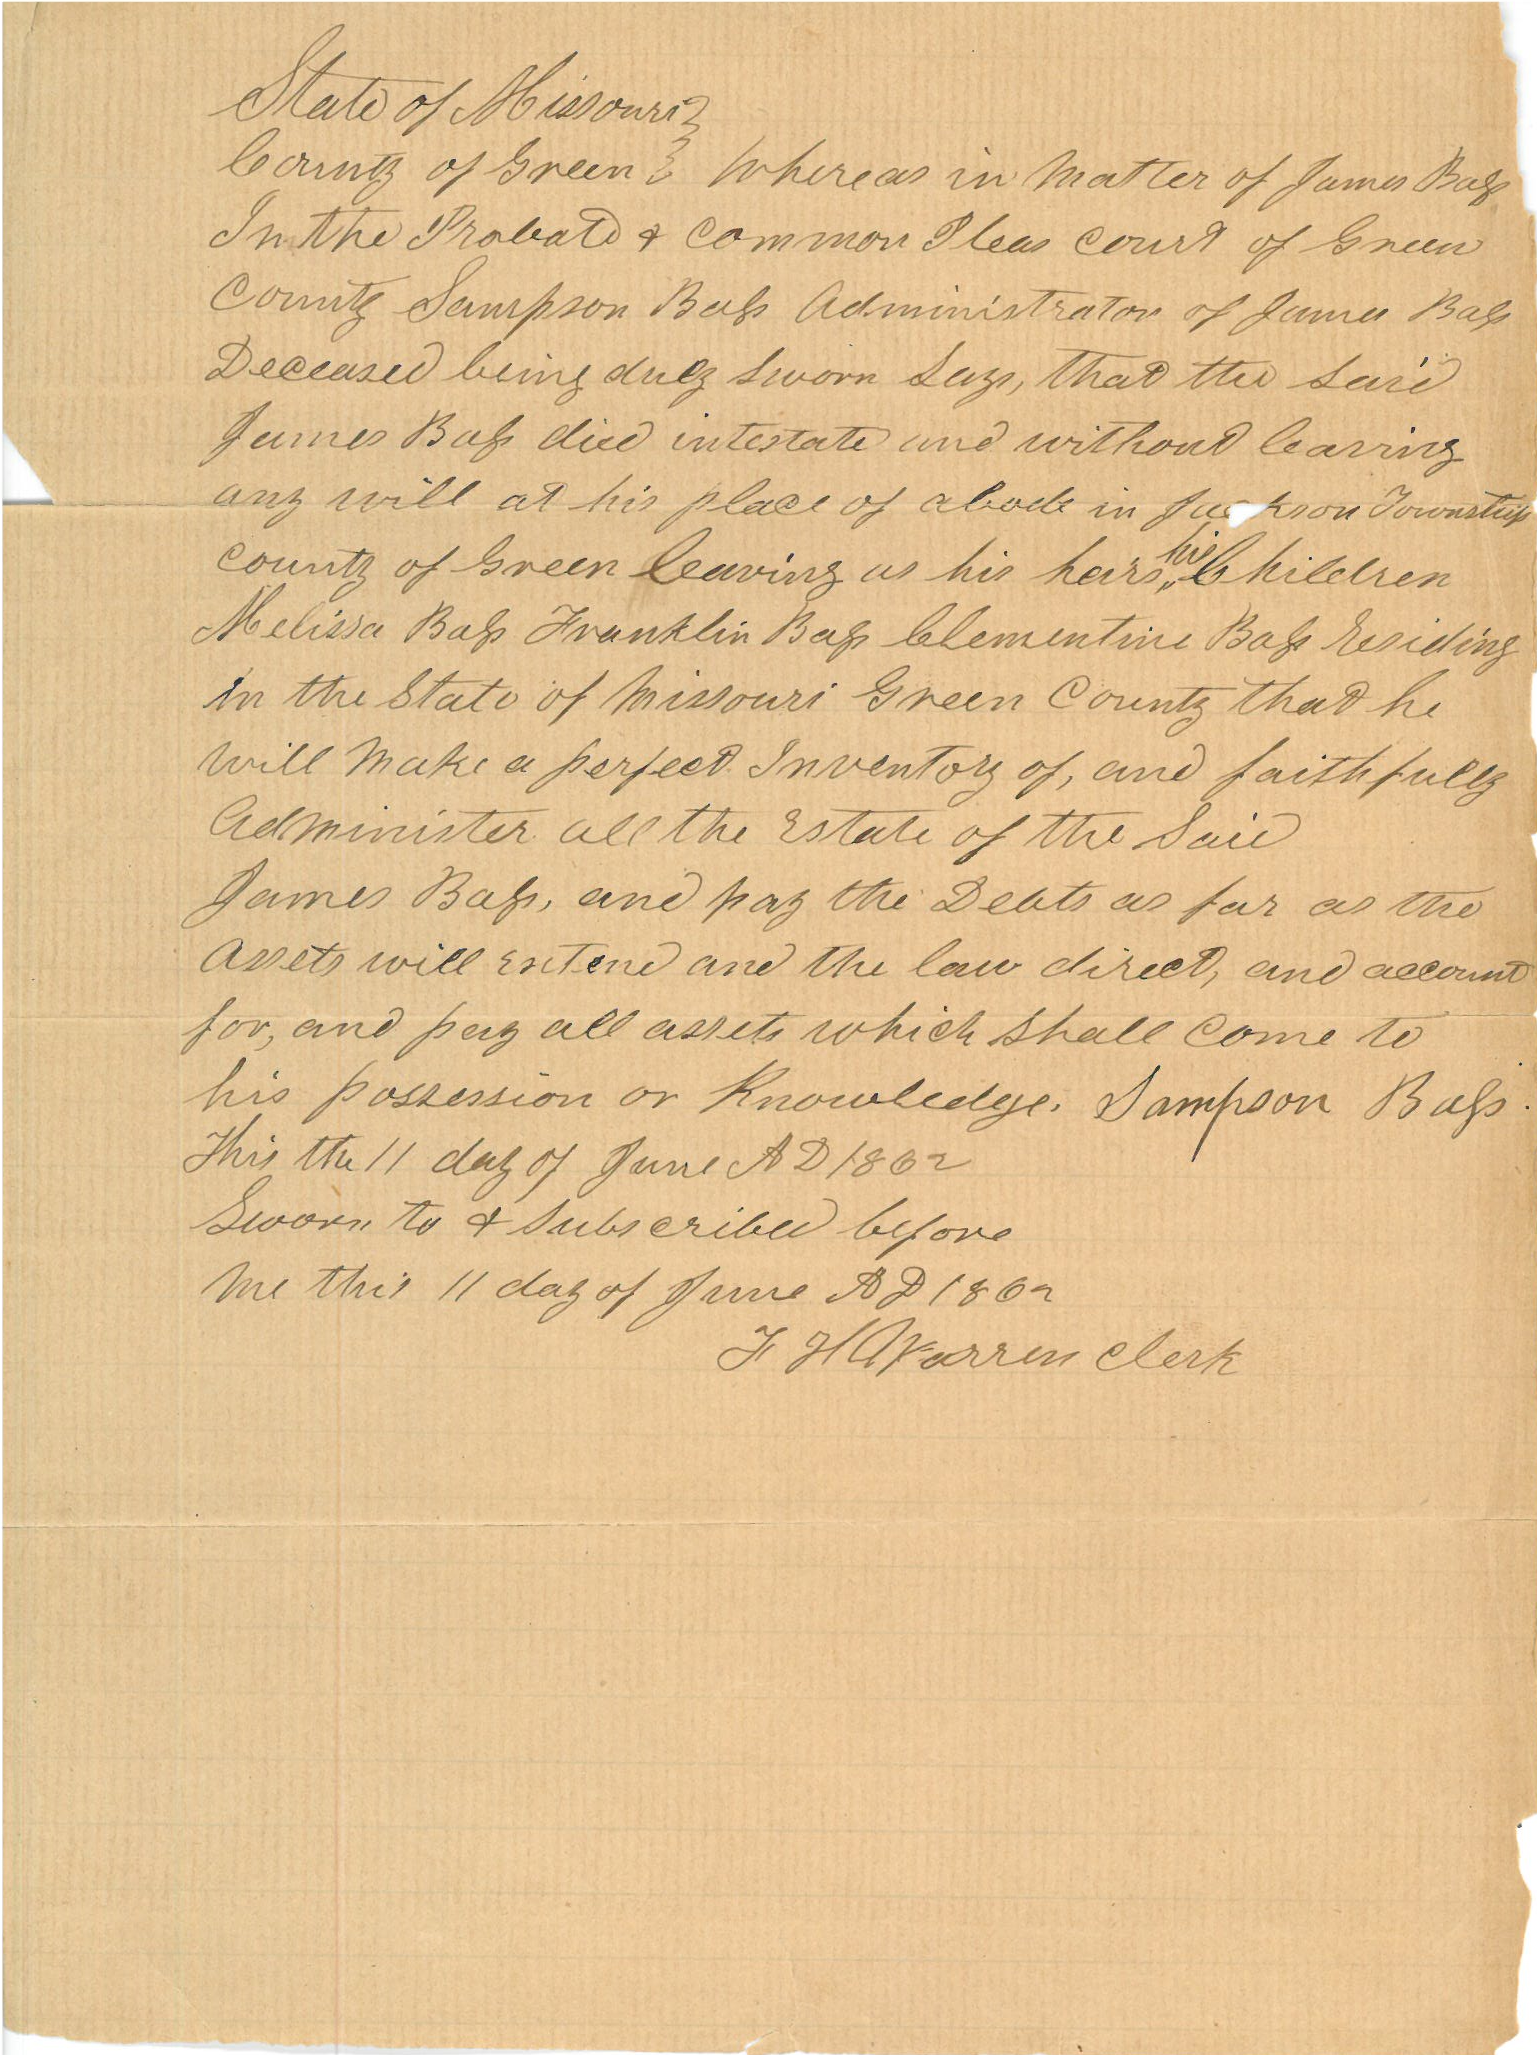 State of Missouri }
County of Green } Whereas in Matter of James Bass
In the Probate & Common Pleas court of Green
County Sampson Bass Administrator of James Bass
Deceased being duly Sworn Says, that the Said
James Bass died intestate and without leaving
any will at his place of abode in Jackson Township
County of Green Leaving as his heirs, his Children
Melissa Bass Franklin Bass Clementine Bass Residing
in the State of Missouri Green County that he
will Make a perfect Inventory of, and faithfully
Administer all the Estate of the Said
James Bass, and pay the Debts as far as the
Assets will Extend and the law direct, and account
for, and pay all assets which shall Come to
his possession or Knowledge. Sampson Bass.
This the 11 day of June AD 1862
Sworn to & Subscribed before
Me this 11 day of June AD 1862
F H Warren Clerk